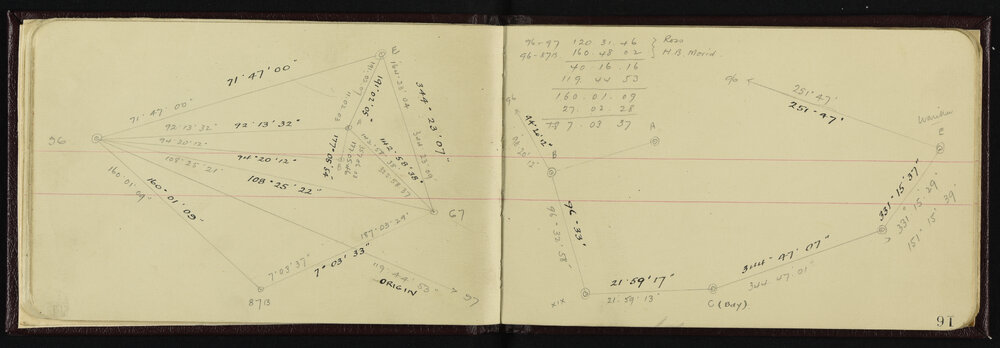 E
71·47'00"
71·47'00"
96
92·13'32"
92·13'32"
94·20'12"
94°20'12"
108·25'21"
108°25'22"
160·01'09"
160·01'09"
191·02'05"
164·23'04
344·23'07"
344·23·09
142·58'38"
67
187·03·29"
7·03'37"
7°03'33"
119·44·53"
ORIGIN
97
87B
96-97 120 31 46 } Ross
96-87B 160 48 02 } H.B. Morid
40 16 16
119 44 53
160·01·09
27·02·28
187·03 37
A
96
251·47'
251·47'
E
B
96-33"
96-32·58"
XIX
21·59'17"
21·59'13"
C (Day)
344·47·07"
344 47·01"
331·15·37"
331·15·29"
151·15' 39"
16